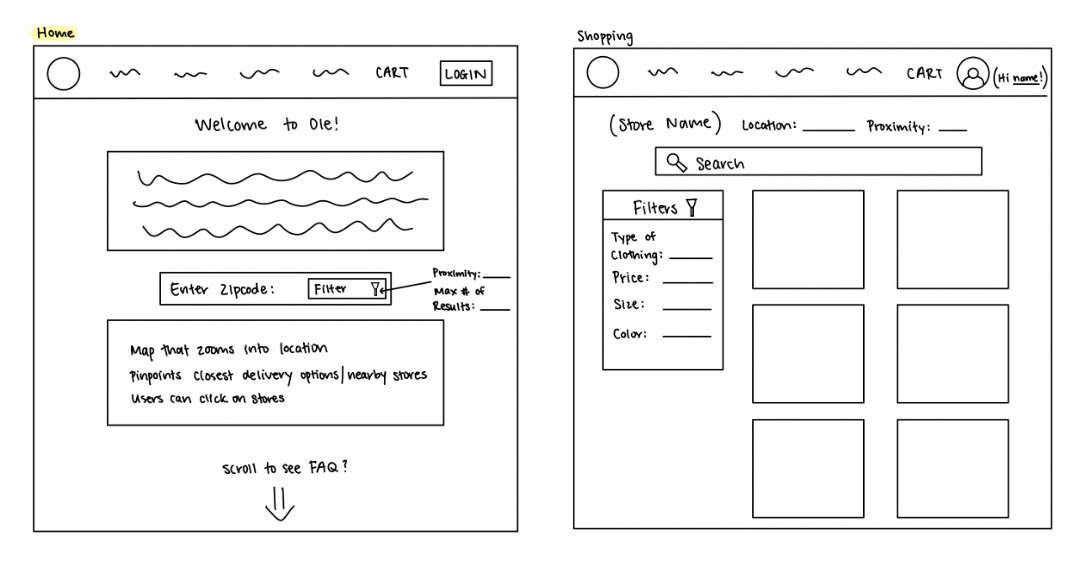 Home
CART
LOGIN
Welcome to Ole!
Enter Zipcode:
Filter
Proximity:
Max # of
Results:
Map that zooms into location
Pinpoints closest delivery options/nearby stores
Users can click on stores
Scroll to see FAQ?
Shopping
CART
(Hi name!)
(Store Name)
Location:
Proximity:
Search
Filters
Type of
Clothing:
Price:
Size:
Color: